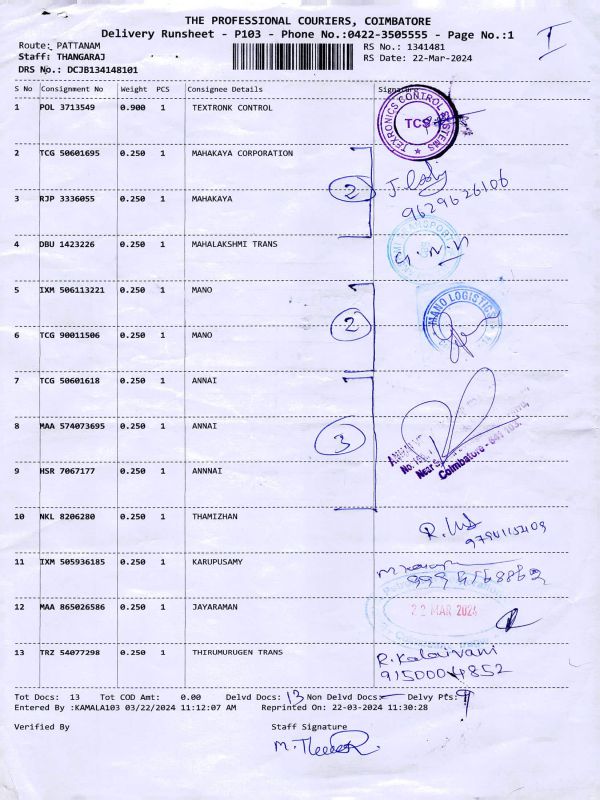 THE PROFESSIONAL COURIERS, COIMBATORE
Delivery Runsheet - P103 - Phone No.:0422-3505555 - Page No.:1
I
Route: PATTANAM
RS No.: 1341481
Staff: THANGARAJ
RS Date: 22-Mar-2024
DRS No.: DCJB134148101
S No Consignment No Weight PCS Consignee Details Signature
1 POL 3713549 0.900 1 TEXTRONK CONTROL
TEXRONICS CONTROL SYSTEMS
TCS
2 TCG 50601695 0.250 1 MAHAKAYA CORPORATION
2
3 RJP 3336055 0.250 1 MAHAKAYA
9629626106
4 DBU 1423226 0.250 1 MAHALAKSHMI TRANS
5 IXM 506113221 0.250 1 MANO
MANO LOGISTICS
2
6 TCG 90011506 0.250 1 MANO
7 TCG 50601618 0.250 1 ANNAI
8 MAA 574073695 0.250 1 ANNAI
3
9 HSR 7067177 0.250 1 ANNNAI
Coimbatore - 641 103.
10 NKL 8206280 0.250 1 THAMIZHAN
11 IXM 505936185 0.250 1 KARUPUSAMY
12 MAA 865026586 0.250 1 JAYARAMAN
22 MAR 2024
13 TRZ 54077298 0.250 1 THIRUMURUGEN TRANS
R. Kalaivani
Tot Docs: 13 Tot COD Amt: 0.00 Delvd Docs: 13 Non Delvd Docs: Delvy Pts: 9
Entered By :KAMALA103 03/22/2024 11:12:07 AM Reprinted On: 22-03-2024 11:30:28
Verified By Staff Signature